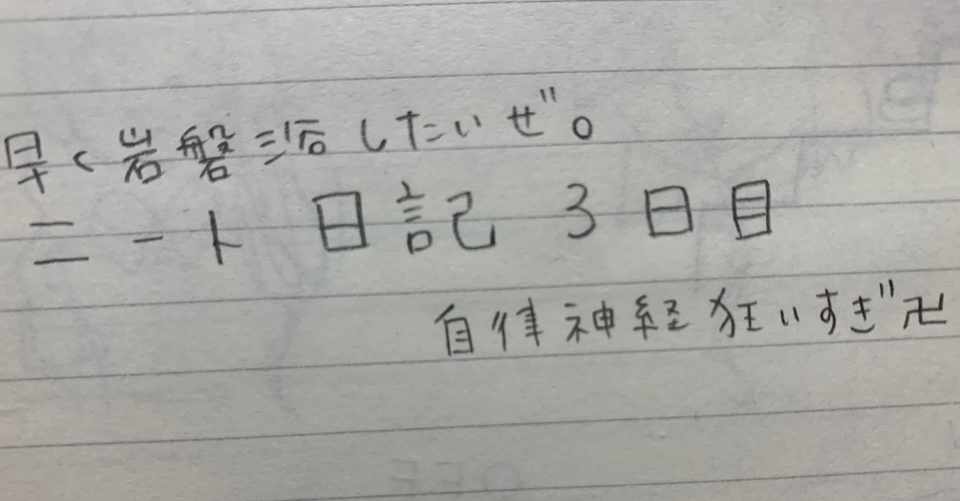 早く岩盤浴したいぜ。
ニート日記 3日目
自律神経狂いすぎ卍